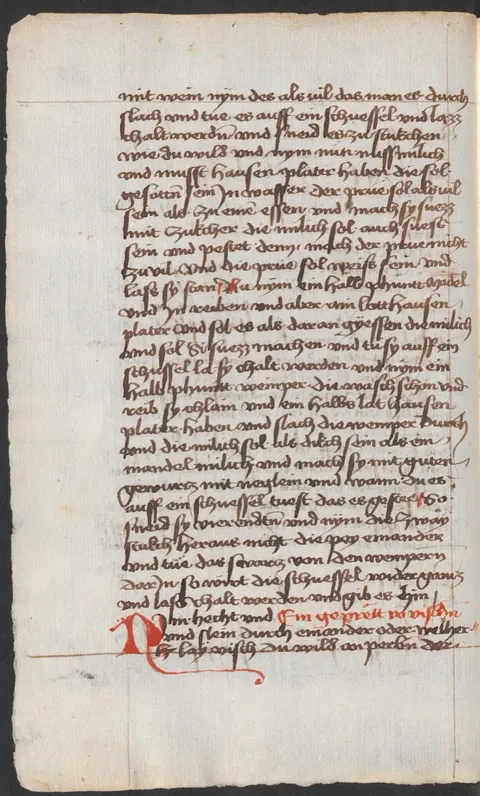 mit wein nÿm des als uil das man es durch
slach vnd tue es auff ein schuessel vnd lazz
chalt werdn vnd sneid es zu stukchen
wie du wild vnd nym nun nussmilich
vnd musst hausen plater haben die sol
gesottn sein Jn wasser der prüe sol als uil
sein als zu eine essen vnd mach sy suezz
mit zukcher die milich sol auch suess
sein vnd pestet denn mach der prue nicht
zu uil vnd die prüe sol weiss sein vnd
lass sy stan Du nÿm ein halb phuntt mandel
vnd zu reiben vnd aber ain lott hausen
plater vnd sol es als daran gyessen die milich
vnd sol suezz machen vnd tu sy auff ein
schussel la sy chalt werden vnd nÿm ein
halb phuntt weinper die wasch schon vnd
reib sy chlain vnd ein halbs lat hausen
plater haben vnd slach die weinper durch
vnd die milich sol als dikch sein als ein
mandel milich vnd mach sy mit guten
gewurtz mit neglein vnd wann du es
auff ein schuessel tuest das es gestee So
sneid sy vierendtn vnd nÿm die zwaÿ
stukch heraus nicht die peÿ einander
vnd tüe das swartz von den weinpern
dar Jn so wirt die schuessel wider gantz
vnd lass chalt werden vnd gib es hin
Nim hecht vnd Ein geprött vo vischn
vnd slein durch einander oder welher
lay visch du wild vn perbn der